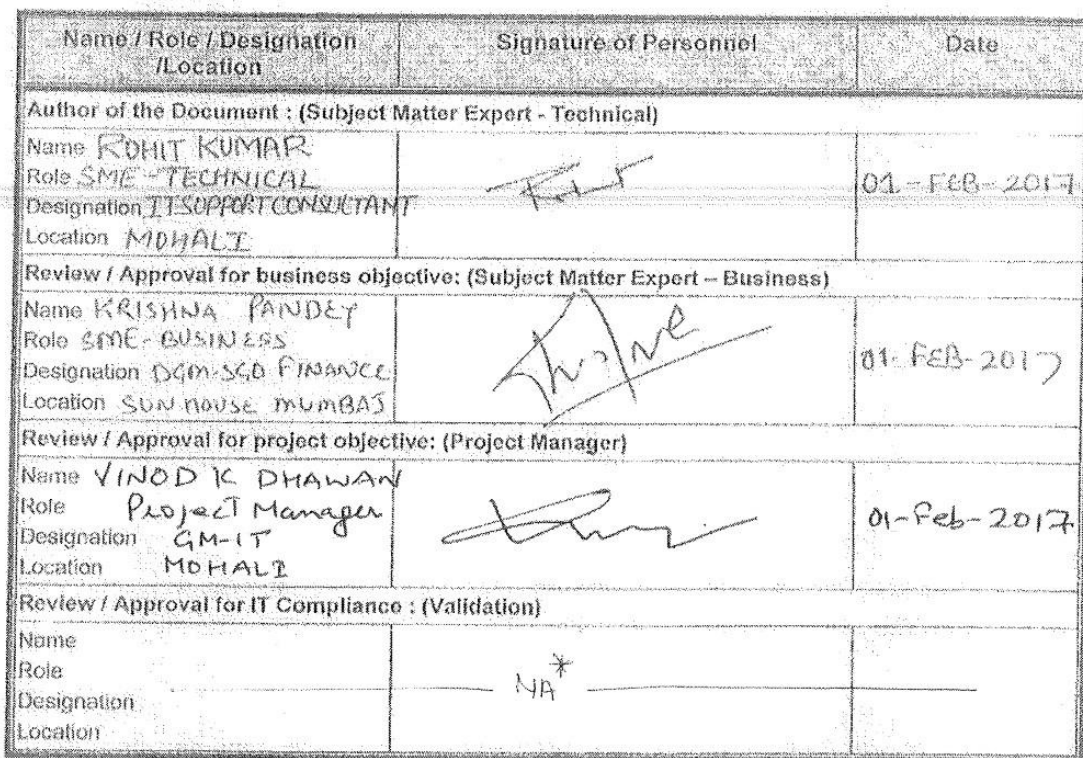 Name / Role / Designation /Location Signature of Personnel Date
Author of the Document : (Subject Matter Expert - Technical)
Name ROHIT KUMAR
Role SME - TECHNICAL
Designation IT SUPPORT CONSULTANT
Location MOHALI
01-FEB-2017
Review / Approval for business objective: (Subject Matter Expert – Business)
Name KRISHNA PANDEY
Role SME- BUSINESS
Designation DGM-SGO FINANCE
Location SUN HOUSE MUMBAI
01-FEB-2017
Review / Approval for project objective: (Project Manager)
Name VINOD K DHAWAN
Role Project Manager
Designation GM-IT
Location MOHALI
01-Feb-2017
Review / Approval for IT Compliance : (Validation)
Name
Role
Designation
Location
NA*